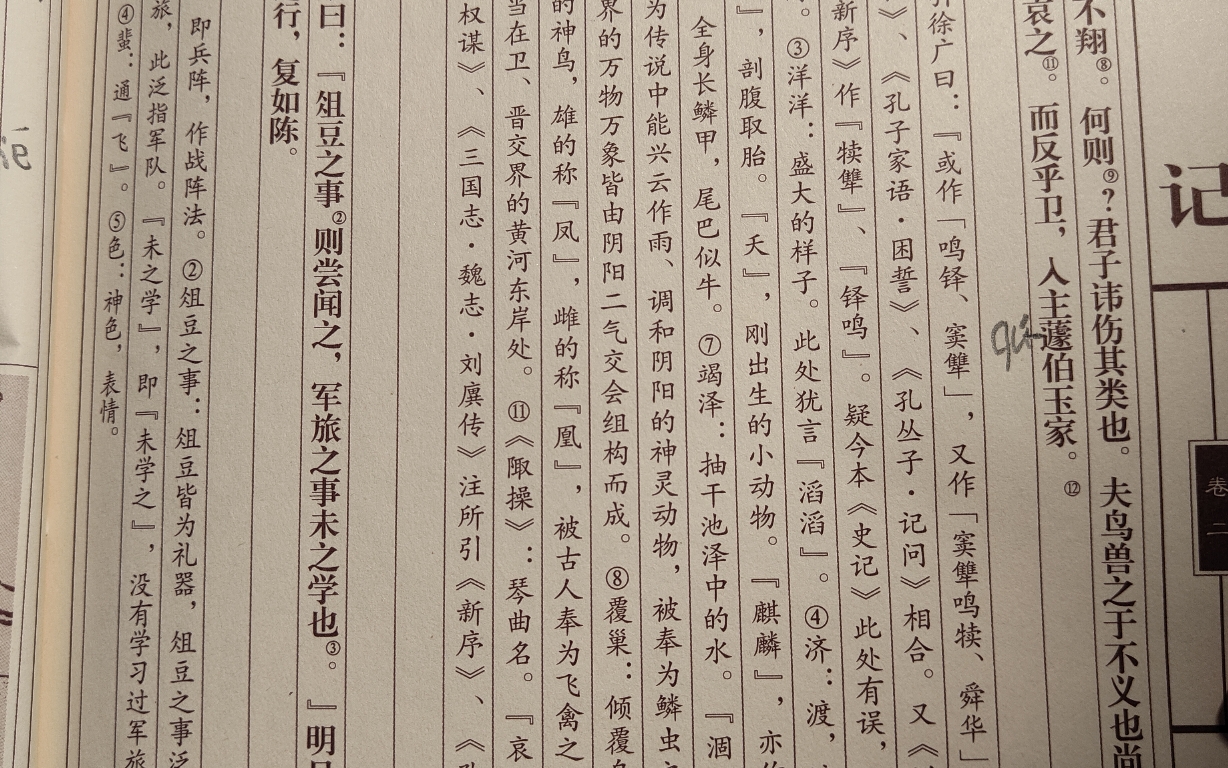 记
卷二
不翔⑧。何则⑨？君子讳伤其类也。夫鸟兽之于不义也尚
哀之⑪。而反乎卫，入主蘧伯玉家。⑫
qú
徐广曰：『或作「鸣铎、窦犨」，又作「窦犨鸣犊、舜华」
》、《孔子家语·困誓》、《孔丛子·记问》相合。又《
新序》作『犊犨』、『铎鸣』。疑今本《史记》此处有误，
。③洋洋：盛大的样子。此处犹言『滔滔』。④济：渡，
』，剖腹取胎。『夭』，刚出生的小动物。『麒麟』，亦
全身长鳞甲，尾巴似牛。⑦竭泽：抽干池泽中的水。『涸
为传说中能兴云作雨、调和阴阳的神灵动物，被奉为鳞虫
界的万物万象皆由阴阳二气交会组构而成。⑧覆巢：倾覆
的神鸟，雄的称『凤』，雌的称『凰』，被古人奉为飞禽之
当在卫、晋交界的黄河东岸处。⑪《陬操》：琴曲名。『哀
权谋》、《三国志·魏志·刘廙传》注所引《新序》、《
曰：『俎豆之事②则尝闻之，军旅之事未之学也③。』明
行，复如陈。
即兵阵，作战阵法。②俎豆之事：俎豆皆为礼器，俎豆之事泛
旅，此泛指军队。『未之学』，即『未学之』，没有学习过军旅
④蜚：通『飞』。⑤色：神色，表情。